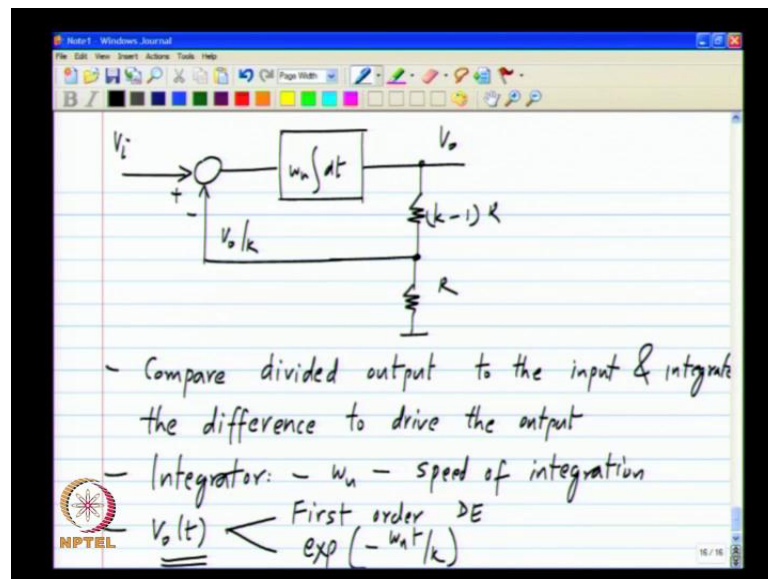 Note1 - Windows Journal
File Edit View Insert Actions Tools Help
Page Width
B I
Vi
ωu∫dt
Vo
+
-
(k-1)R
Vo/k
R
- Compare divided output to the input & integrate
the difference to drive the output
- Integrator: - ωu - speed of integration
- Vo(t) < First order DE
exp(-ωut/k)
NPTEL
16 / 16